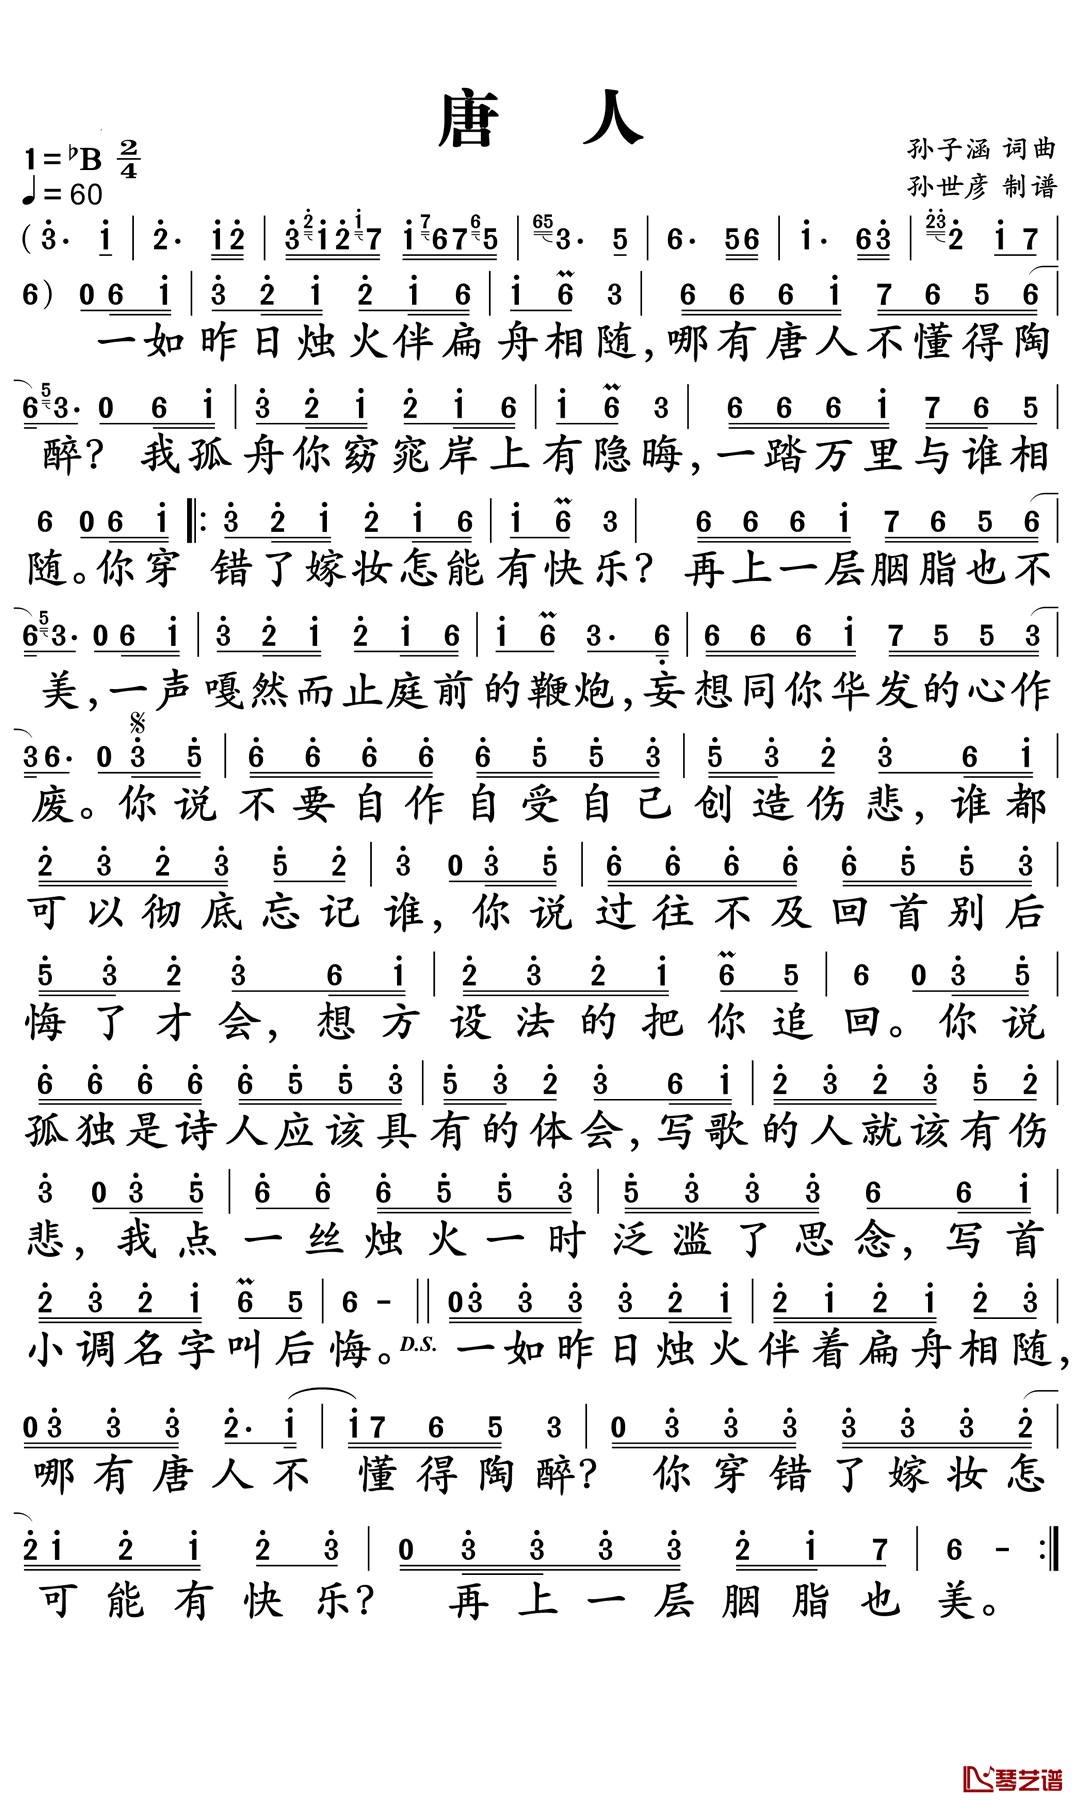 唐 人
1=♭B 2/4
孙子涵 词曲
♩=60
孙世彦 制谱
(3· 1 | 2· 12 | 3 2 12 1 7 1 7 67 6 5 | 65 3· 5 | 6· 56 | 1· 63 | 23 2 1 7
6) 0 6 1 | 3 2 1 2 1 6 | 1 6 3 | 6 6 6 1 7 6 5 6 |
一如昨日烛火伴扁舟相随,哪有唐人不懂得陶
6 5 3· 0 6 1 | 3 2 1 2 1 6 | 1 6 3 | 6 6 6 1 7 6 5 |
醉? 我孤舟你窈窕岸上有隐晦,一踏万里与谁相
6 0 6 1 ‖: 3 2 1 2 1 6 | 1 6 3 | 6 6 6 1 7 6 5 6 |
随。你穿 错了嫁妆怎能有快乐? 再上一层胭脂也不
6 5 3· 0 6 1 | 3 2 1 2 1 6 | 1 6 3· 6 | 6 6 6 1 7 5 5 3 |
美,一声嘎然而止庭前的鞭炮,妄想同你华发的心作
3 6· 0 3 5 | 6 6 6 6 6 5 5 3 | 5 3 2 3 6 1 |
废。你说不要自作自受自己创造伤悲,谁都
2 3 2 3 5 2 | 3 0 3 5 | 6 6 6 6 6 5 5 3 |
可以彻底忘记谁,你说过往不及回首别后
5 3 2 3 6 1 | 2 3 2 1 6 5 | 6 0 3 5 |
悔了才会,想方设法的把你追回。你说
6 6 6 6 6 5 5 3 | 5 3 2 3 6 1 | 2 3 2 3 5 2 |
孤独是诗人应该具有的体会,写歌的人就该有伤
3 0 3 5 | 6 6 6 5 5 3 | 5 3 3 3 6 6 1 |
悲,我点一丝烛火一时泛滥了思念,写首
2 3 2 1 6 5 | 6 - ‖ 0 3 3 3 3 2 1 | 2 1 2 1 2 3 |
小调名字叫后悔。D.S. 一如昨日烛火伴着扁舟相随,
0 3 3 3 2· 1 | 1 7 6 5 3 | 0 3 3 3 3 3 3 2 |
哪有唐人不 懂得陶醉? 你穿错了嫁妆怎
2 1 2 1 2 3 | 0 3 3 3 3 2 1 7 | 6 - :‖
可能有快乐? 再上一层胭脂也美。
琴艺谱